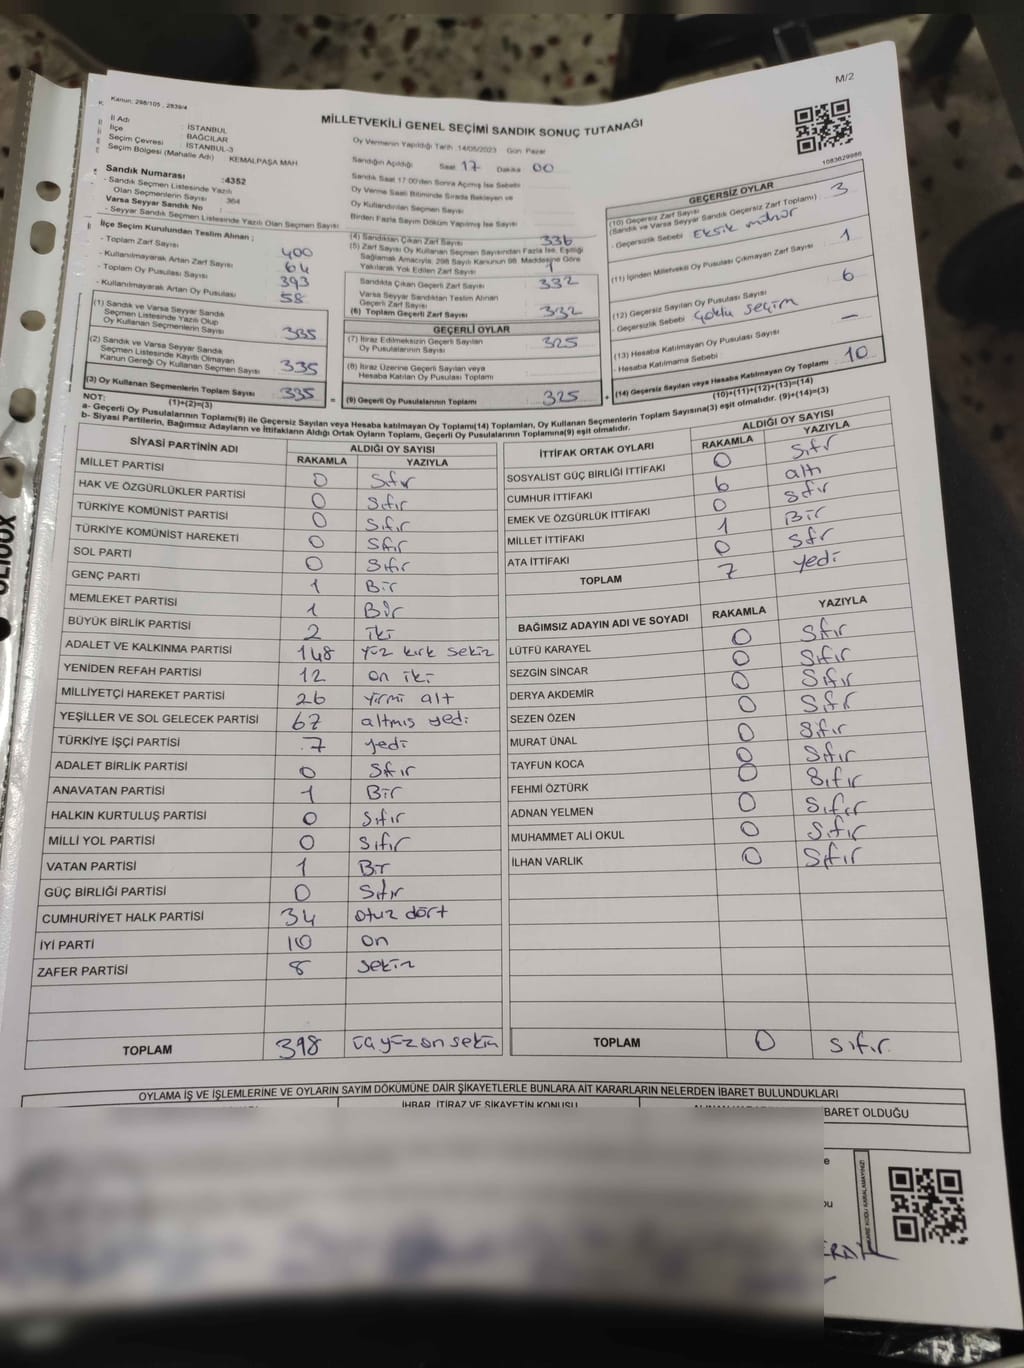 M/2
Kanun, 298/105 , 2839/4
MİLLETVEKİLİ GENEL SEÇİMİ SANDIK SONUÇ TUTANAĞI
İl Adı : İSTANBUL
İlçe : BAĞCILAR
Seçim Çevresi : İSTANBUL-3
Seçim Bölgesi (Mahalle Adı) KEMALPAŞA MAH
Sandık Numarası :4352
- Sandık Seçmen Listesinde Yazılı
Olan Seçmenlerin Sayısı 364
Varsa Seyyar Sandık No :
- Seyyar Sandık Seçmen Listesinde Yazılı Olan Seçmen Sayısı
Oy Vermenin Yapıldığı Tarih :14/05/2023 Gün: Pazar
Sandığın Açıldığı Saat 17 Dakika 00
Sandık Saat 17.00'den Sonra Açılmış İse Sebebi
Oy Verme Saati Bitiminde Sırada Bekleyen ve
Oy Kullandırılan Seçmen Sayısı
Birden Fazla Sayım Döküm Yapılmış İse Sayısı
1083629986
İlçe Seçim Kurulundan Teslim Alınan ;
- Toplam Zarf Sayısı 400
- Kullanılmayarak Artan Zarf Sayısı 64
- Toplam Oy Pusulası Sayısı 393
- Kullanılmayarak Artan Oy Pusulası 58
(1) Sandık ve Varsa Seyyar Sandık
Seçmen Listesinde Yazılı Olup
Oy Kullanan Seçmenlerin Sayısı 335
(2) Sandık ve Varsa Seyyar Sandık
Seçmen Listesinde Kayıtlı Olmayan
Kanun Gereği Oy Kullanan Seçmen Sayısı 335
(3) Oy Kullanan Seçmenlerin Toplam Sayısı 335
(1)+(2)=(3)
(4) Sandıktan Çıkan Zarf Sayısı 336
(5) Zarf Sayısı Oy Kullanan Seçmen Sayısından Fazla İse, Eşitliği
Sağlamak Amacıyla, 298 Sayılı Kanunun 98. Maddesine Göre
Yakılarak Yok Edilen Zarf Sayısı 1
Sandıkta Çıkan Geçerli Zarf Sayısı 332
Varsa Seyyar Sandıktan Teslim Alınan
Geçerli Zarf Sayısı
(6) Toplam Geçerli Zarf Sayısı 332
GEÇERLİ OYLAR
(7) İtiraz Edilmeksizin Geçerli Sayılan
Oy Pusulalarının Sayısı 325
(8) İtiraz Üzerine Geçerli Sayılan veya
Hesaba Katılan Oy Pusulası Toplamı
= (9) Geçerli Oy Pusulalarının Toplamı 325
GEÇERSİZ OYLAR
(10) Geçersiz Zarf Sayısı
(Sandık ve Varsa Seyyar Sandık Geçersiz Zarf Toplamı) 3
- Geçersizlik Sebebi Eksik mühür
(11) İçinden Milletvekili Oy Pusulası Çıkmayan Zarf Sayısı 1
(12) Geçersiz Sayılan Oy Pusulası Sayısı 6
- Geçersizlik Sebebi Çoklu seçim
(13) Hesaba Katılmayan Oy Pusulası Sayısı —
- Hesaba Katılmama Sebebi
+ (14) Geçersiz Sayılan veya Hesaba Katılmayan Oy Toplamı 10
(10)+(11)+(12)+(13)=(14)
NOT:
a- Geçerli Oy Pusulalarının Toplamı(9) ile Geçersiz Sayılan veya Hesaba katılmayan Oy Toplamı(14) Toplamları, Oy Kullanan Seçmenlerin Toplam Sayısına(3) eşit olmalıdır. (9)+(14)=(3)
b- Siyasi Partilerin, Bağımsız Adayların ve İttifakların Aldığı Ortak Oyların Toplamı, Geçerli Oy Pusulalarının Toplamına(9) eşit olmalıdır.
SİYASİ PARTİNİN ADI ALDIĞI OY SAYISI
RAKAMLA YAZIYLA
MİLLET PARTİSI 0 Sıfır
HAK VE ÖZGÜRLÜKLER PARTİSİ 0 Sıfır
TÜRKİYE KOMÜNİST PARTİSİ 0 Sıfır
TÜRKİYE KOMÜNİST HAREKETİ 0 Sfır
SOL PARTİ 0 Sıfır
GENÇ PARTİ 1 Bir
MEMLEKET PARTİSİ 1 Bir
BÜYÜK BİRLİK PARTİSİ 2 iki
ADALET VE KALKINMA PARTİSİ 148 yüz kırk sekiz
YENİDEN REFAH PARTİSİ 12 on iki
MİLLİYETÇİ HAREKET PARTİSİ 26 yirmi alt
YEŞİLLER VE SOL GELECEK PARTİSİ 67 altmış yedi
TÜRKİYE İŞÇİ PARTİSİ 7 yedi
ADALET BİRLİK PARTİSİ 0 Sfır
ANAVATAN PARTİSİ 1 Bir
HALKIN KURTULUŞ PARTİSİ 0 Sıfır
MİLLİ YOL PARTİSİ 0 Sıfır
VATAN PARTİSİ 1 Bir
GÜÇ BİRLİĞİ PARTİSİ 0 Sıfır
CUMHURİYET HALK PARTİSİ 34 otuz dört
İYİ PARTİ 10 on
ZAFER PARTİSİ 8 sekiz
TOPLAM 318 üçyüzonsekiz
İTTİFAK ORTAK OYLARI ALDIĞI OY SAYISI
RAKAMLA YAZIYLA
SOSYALİST GÜÇ BİRLİĞİ İTTİFAKI 0 Sıfır
CUMHUR İTTİFAKI 6 altı
EMEK VE ÖZGÜRLÜK İTTİFAKI 0 sıfır
MİLLET İTTİFAKI 1 Bir
ATA İTTİFAKI 0 Sfr
TOPLAM 7 yedi
BAĞIMSIZ ADAYIN ADI VE SOYADI RAKAMLA YAZIYLA
LÜTFÜ KARAYEL 0 Sıfır
SEZGİN SİNCAR 0 Sıfır
DERYA AKDEMİR 0 Sıfır
SEZEN ÖZEN 0 Sıfır
MURAT ÜNAL 0 Sıfır
TAYFUN KOCA 0 Sıfır
FEHMİ ÖZTÜRK 0 Sıfır
ADNAN YELMEN 0 Sıfır
MUHAMMET ALİ OKUL 0 Sıfır
İLHAN VARLIK 0 Sıfır
TOPLAM 0 Sıfır
OYLAMA İŞ VE İŞLEMLERİNE VE OYLARIN SAYIM DÖKÜMÜNE DAİR ŞİKAYETLERLE BUNLARA AİT KARARLARIN NELERDEN İBARET BULUNDUKLARI
İHBAR, İTİRAZ VE ŞİKAYETİN KONUSU
BARET OLDUĞU